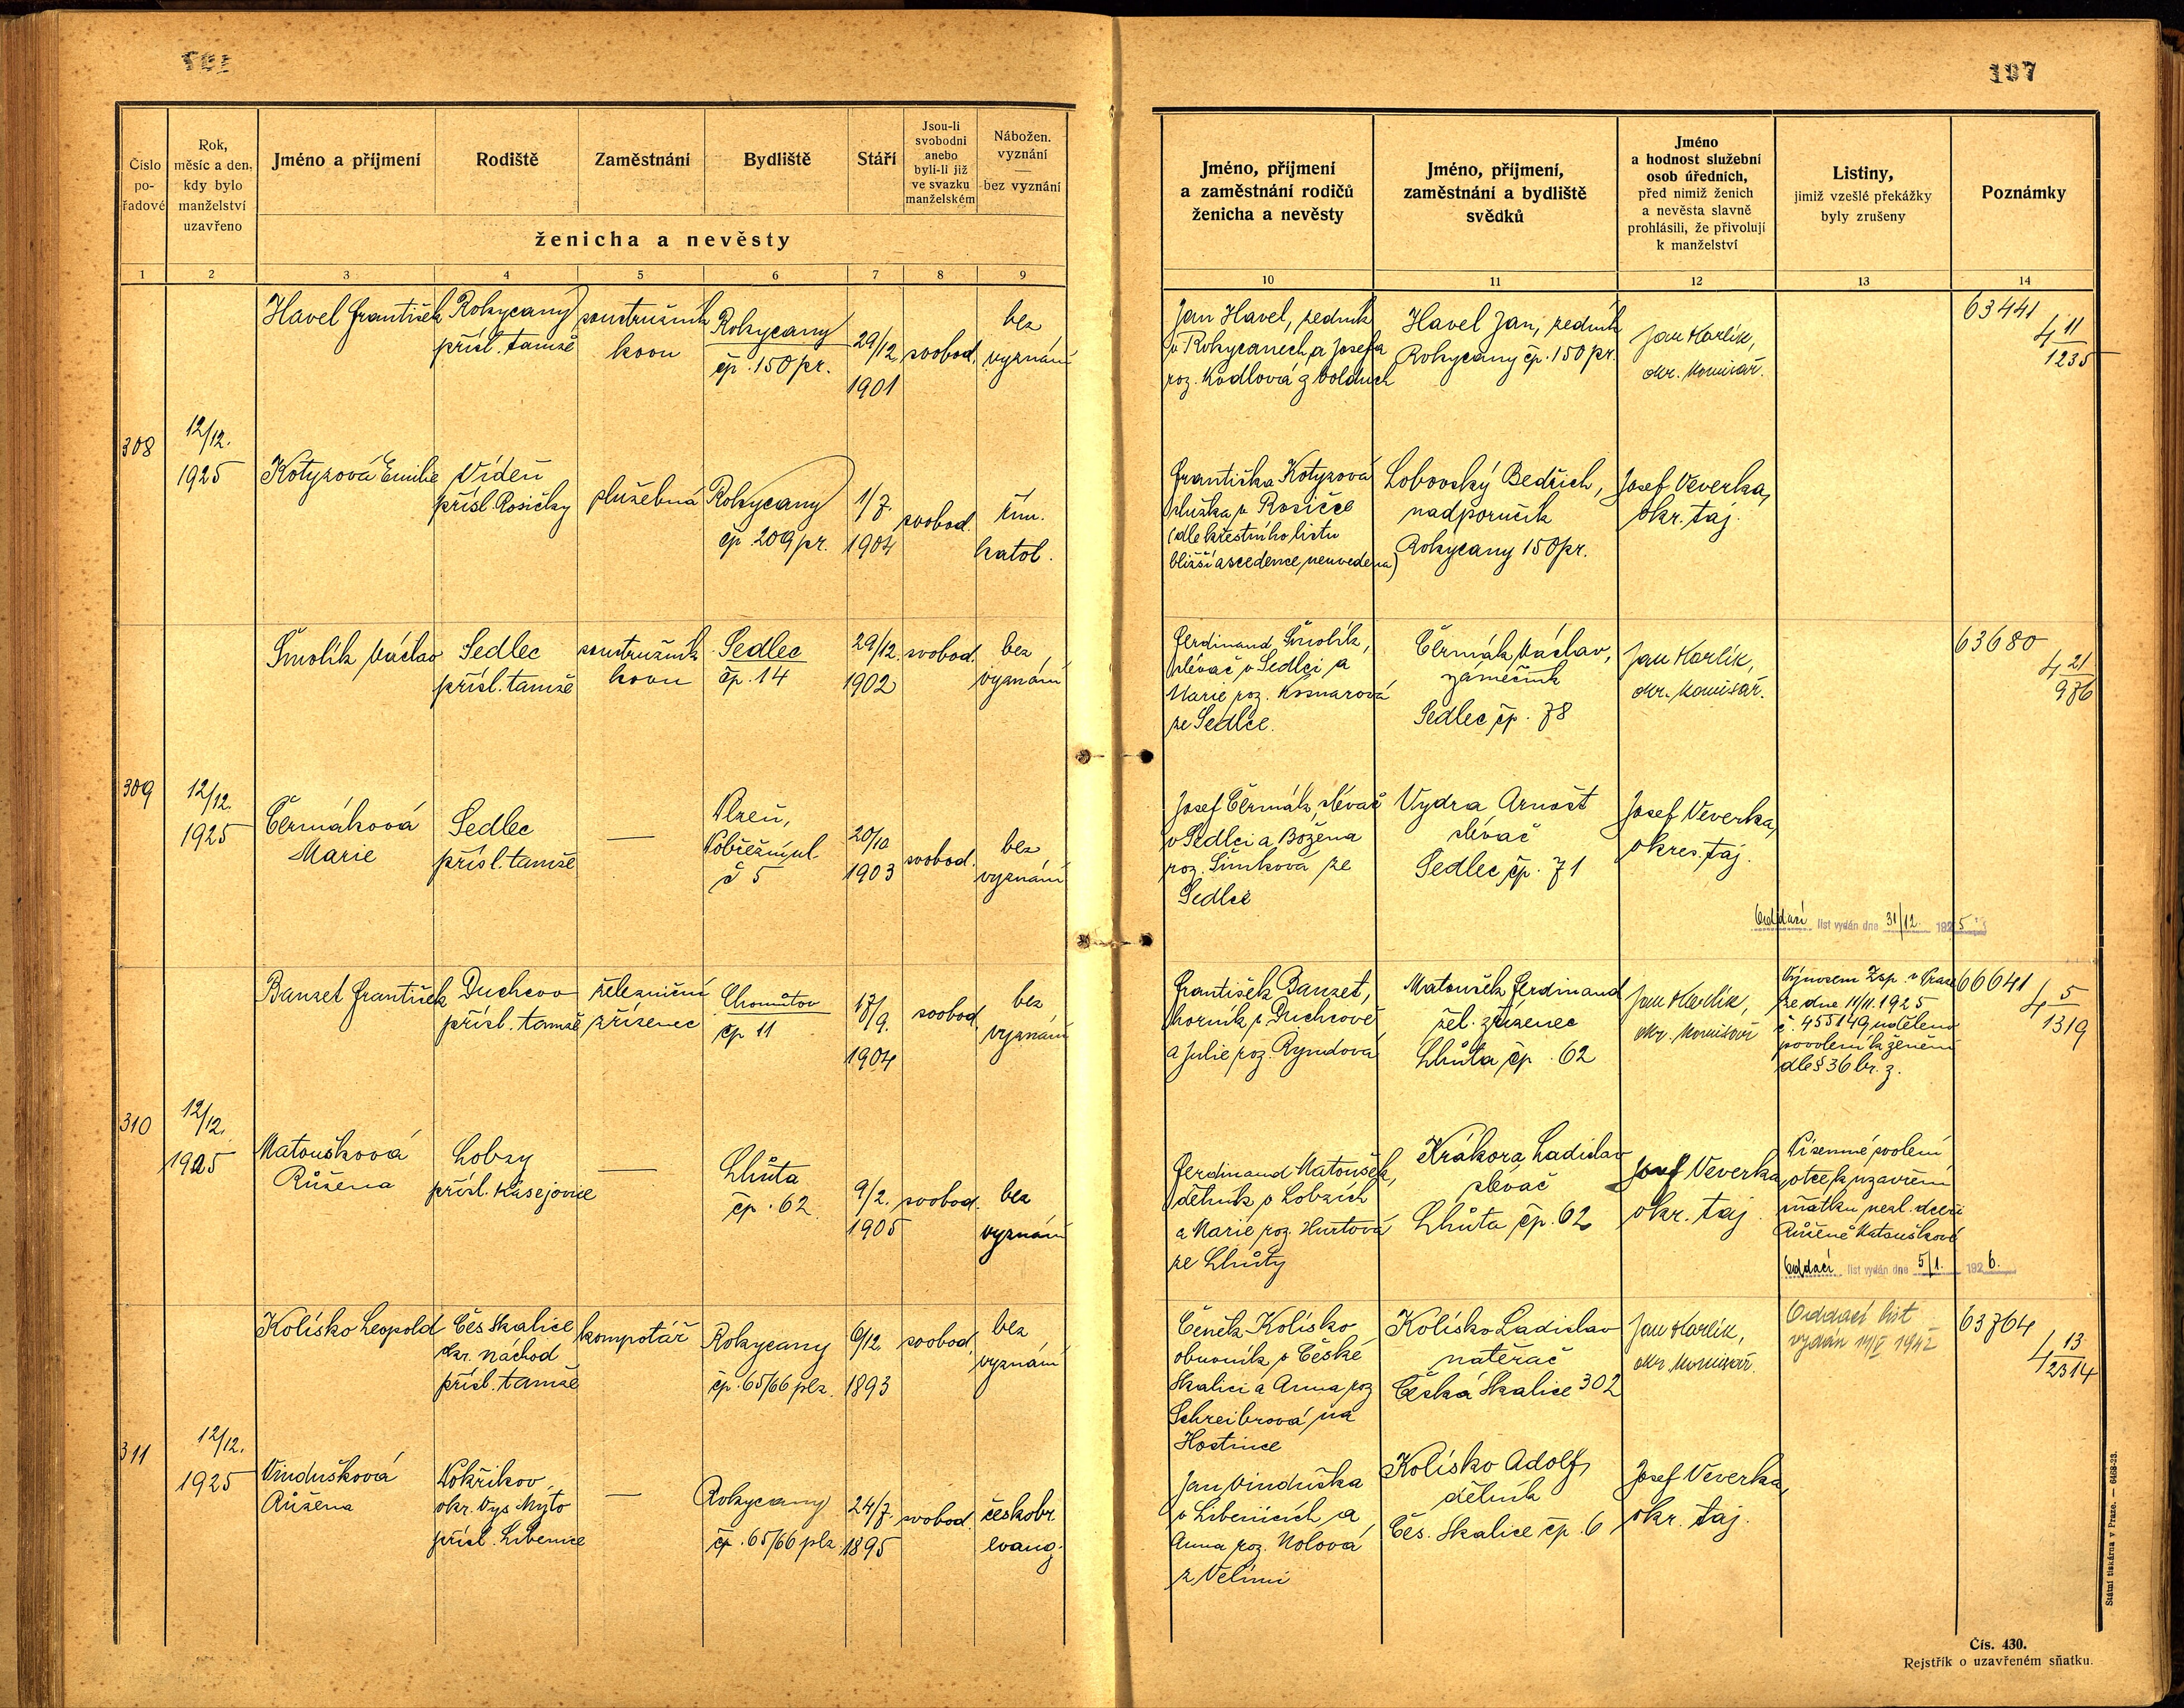 107
Číslo
po-
řadové
Rok,
měsíc a den,
kdy bylo
manželství
uzavřeno
Jméno a příjmení
Rodiště
Zaměstnání
Bydliště
Stáří
Jsou-li
svobodni
anebo
byli-li již
ve svazku
manželském
Nábožen.
vyznání
—
bez vyznání
ženicha a nevěsty
Jméno, příjmení
a zaměstnání rodičů
ženicha a nevěsty
Jméno, příjmení,
zaměstnání a bydliště
svědků
Jméno
a hodnost služební
osob úředních,
před nimiž ženich
a nevěsta slavně
prohlásili, že přivolují
k manželství
Listiny,
jimiž vzešlé překážky
byly zrušeny
Poznámky
1 2 3 4 5 6 7 8 9 10 11 12 13 14
308
12/12.
1925
Havel František
Rokycany
přísl. tamže
soustružník
kovu
Rokycany
čp. 150 pr.
29/12
1901
svobod.
bez
vyznání
Jan Havel, zedník
v Rokycanech a Josefa
roz. Kodlová z Volduch
Havel Jan, zedník
Rokycany čp. 150 pr.
Jan Karlík,
okr. komisař.
63441
4 11/1235
Kotyzová Emilie
Vídeň
přísl. Rosičky
služebná
Rokycany
čp. 209 pr.
1/7.
1904
svobod.
řím.
katol.
Františka Kotyzová
služka v Rosičce
(dle křestního listu
bližší ascedence neuvedena)
Lobovský Bedřich,
nadporučík
Rokycany 150 pr.
Josef Veverka,
okr. taj.
309
12/12.
1925
Šmolík Václav
Sedlec
přísl. tamže
soustružník
kovu
Sedlec
čp. 14
29/12.
1902
svobod.
bez
vyznání
Ferdinand Šmolík,
slévač v Sedlci a
Marie roz.
ze Sedlce.
Čermák Václav,
zámečník
Sedlec čp. 78
Jan Karlík,
okr. komisař.
63680
4 21/976
Čermáková
Marie
Sedlec
přísl. tamže
—
Plzeň,
Pobřežní ul.
č 5
20/10
1903
svobod.
bez
vyznání
Josef Čermák, slévač
v Sedlci a Božena
roz. Šimková ze
Sedlce
Vydra Arnošt
slévač
Sedlec čp. 71
Josef Veverka,
okres. taj.
Oddací list vydán dne 31/12. 1925
310
12/12.
1925
Banzet František
Duchcov
přísl. tamže
železniční
zřízenec
Chomutov
čp 11
17/9.
1904
svobod.
bez
vyznání
František Banzet,
horník v Duchcově
a Julie roz. Ryndová
Matoušek Ferdinand
žel. zřízenec
Lhůta čp. 62
Jan Karlík,
okr. komisař
Výnosem Zsp. v Praze
ze dne 11/11. 1925
č. 455149 uděleno
povolení k ženění
dle § 36 br. z.
66641
4 5/1319
Matoušková
Růžena
Lobzy
přísl. Kasejovice
—
Lhůta
čp. 62.
9/2.
1905
svobod.
bez
vyznání
Ferdinand Matoušek,
dělník v Lobzích
a Marie roz. Hurtová
ze Lhůty
Krákora Ladislav
slévač
Lhůta čp. 62
Josef Veverka
okr. taj.
Písemné svolení
otce k uzavření
sňatku nezl. dceři
Růženě Matouškové
Oddací list vydán dne 5/1. 1926.
311
12/12.
1925
Kolísko Leopold
Čes Skalice
okr. Náchod
přísl. tamže
kompotář
Rokycany
čp. 65/66 plz.
6/12.
1893
svobod.
bez
vyznání
Čeněk Kolísko
obuvník v České
Skalici a Anna roz
Schreibrová na
Hostince
Kolísko Ladislav
natěrač
Česká Skalice 302
Jan Karlík,
okr. komisař.
Oddací list
vydán 11/V 1942
63764
4 13/2314
Vindušková
Růžena
Pokřikov
okr. Vys Mýto
přísl. Libenice
—
Rokycany
čp. 65/66 plz.
24/7.
1895
svobod.
českobr.
evang.
Jan Vinduška
v Libenicích a
Anna roz. Nolová
z Velimi
Kolísko Adolf,
dělník
Čes. Skalice čp. 6
Josef Veverka,
okr. taj.
Státní tiskárna v Praze. — 6468-23.
Čís. 430.
Rejstřík o uzavřeném sňatku.